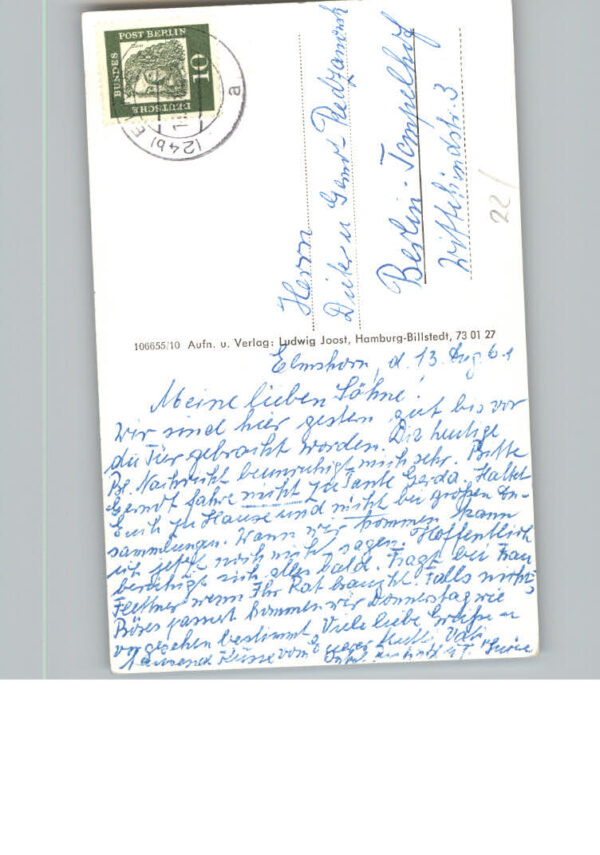 DEUTSCHE BUNDES POST BERLIN
10
(24b) E
a
Herrn
Dirk u Gernot
Berlin-Tempelhof
Wittekindstr. 3
22/
106655/10 Aufn. u. Verlag: Ludwig Joost, Hamburg-Billstedt, 73 01 27
Elmshorn, d. 13. Aug 61
Meine lieben Söhne!
Wir sind hier gestern gut bis vor
die Tür gebracht worden. Die heutige
Nachricht beunruhigt mich sehr. Bitte
Gernot fahre nicht zu Tante Gerda. Haltet
Euch zu Hause und nicht bei großen An-
sammlungen. Wann wir kommen, kann
ich jetzt noch nicht sagen. Hoffentlich
beruhigt sich alles bald. Fragt bei Frau
Flettner wenn Ihr Rat braucht. Falls nichts
Böses passiert kommen wir Donnerstag wie
vorgesehen bestimmt. Viele liebe Grüße u
tausend Küsse von Eurer Mutti Vati